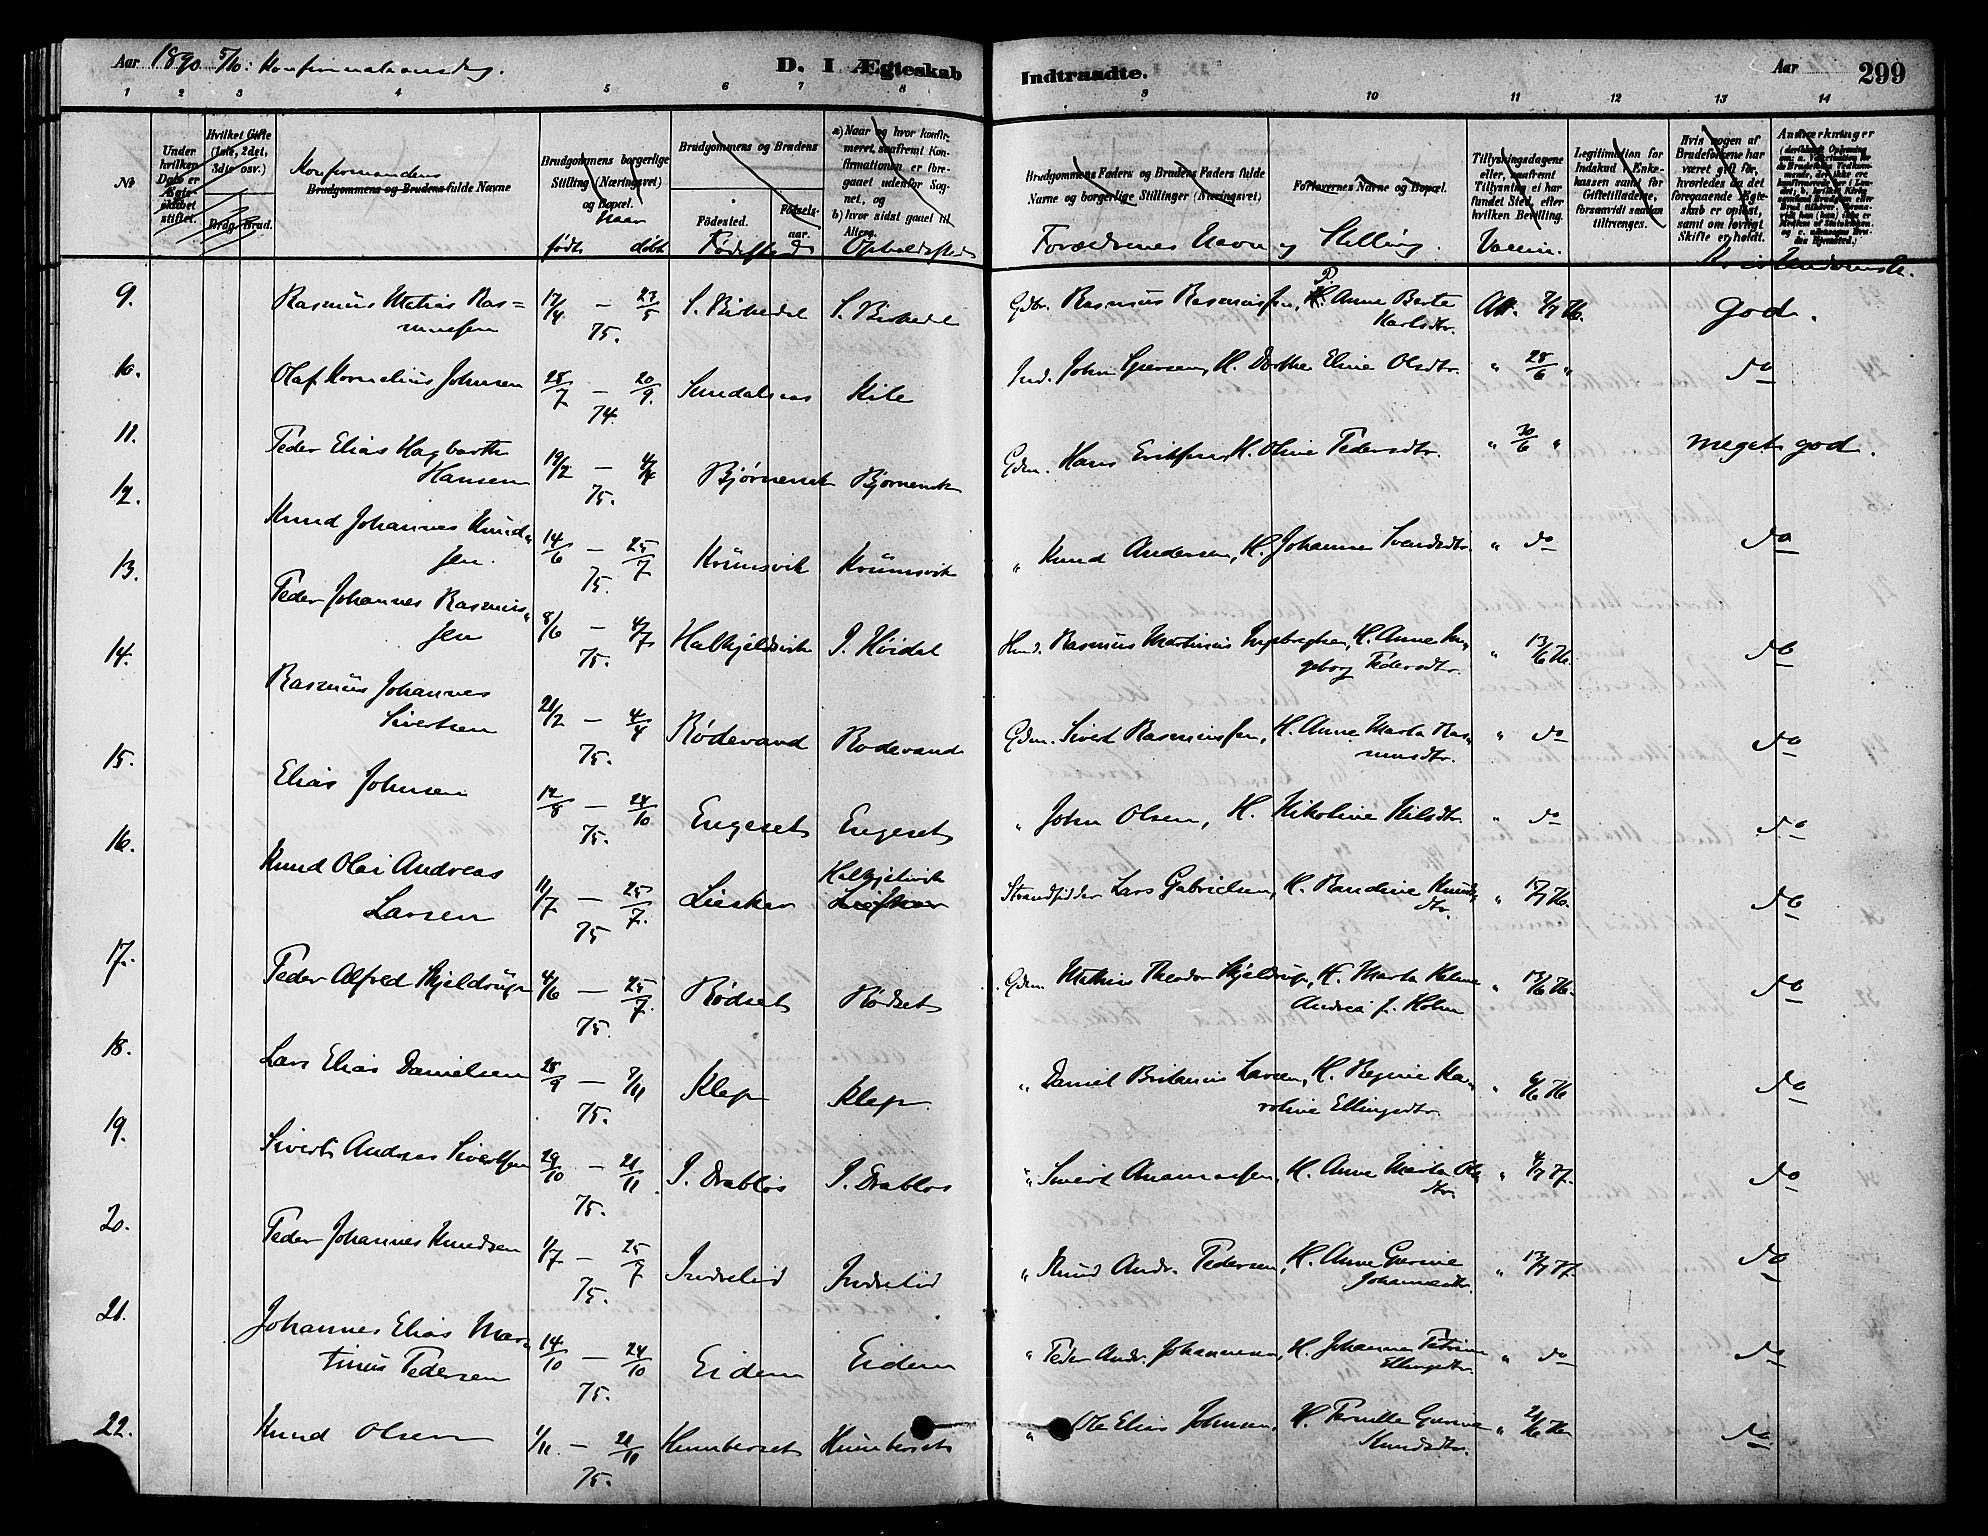 Aar 1890 5/10: Konfirmationsdag.
D. I Ægteskab Indtraadte.
Aar
299
1 2 3 4 5 6 7 8 9 10 11 12 13 14
No
Under hvilken Dato er Ægteskabet stiftet.
Hvilket Gifte (1ste, 2det, 3die osv.)
Brdg. Brud.
Konfirmandens
Brudgommens og Brudens fulde Navne
Brudgommens borgerlige Stilling (Næringsvei) og Bopæl.
Naar
født døbt
Brudgommens og Brudens
Fødested.
Fødselsaar.
Fødested
a) Naar og hvor konfirmeret, saafremt Konfirmationen er foregaaet udenfor Sognet, og
b) hvor sidst gaaet til Alters.
Opholdssted
Brudgommens Faders og Brudens Faders fulde Navne og borgerlige Stillinger (Næringsvei)
Forlovernes Navne og Bopæl.
Forældrenes Navn og Stilling.
Tillysningsdagene eller, saafremt Tillysning ei har fundet Sted, efter hvilken Bevilling.
Vaccin.
Legitimation for Indskud i Enkekassen samt for Giftetilladelse, forsaavidt saadan tiltrænges.
Hvis nogen af Brudefolkene har været gift før, hvorledes da det foregaaende Ægteskab er opløst, samt om lovligt Skifte er holdt.
Anmærkninger
Kristendomsk.
9. Rasmus Matias Rasmussen 17/4 — 23/5 75. S. Birkedal S. Birkedal Gdbr. Rasmus Rasmussen, H. Anne Berte Karlsdtr. Att. 7/7 76. god.
10. Olaf Kornelius Johnsen 28/7 — 20/9 74. Sundalsaas Kile Ind. John Iversen, H. Dorthe Eline Olsdtr. " 28/6 " do
11. Peder Elias Hagbarth Hansen 19/2 — 4/4 75. Bjørneset Bjørneset Gdm. Hans Eriksen, H. Oline Pedersdtr. " 30/6 " meget god.
12. Knud Johannes Knudsen. 14/6 — 25/7 75. Krumsvik Krumsvik " Knud Andersen, H. Johanne Svendsdtr. " do do
13. Peder Johannes Rasmussen 8/6 — 4/7 75. Halkjeldsvik I. Høidal Husm. Rasmus Martinus Ingebrigtsen, H. Anne Ingeborg Pedersdtr. " 13/6 76. do
14. Rasmus Johannes Sivertsen 21/2 — 4/4 75. Rødevand Rødevand Gdm. Sivert Rasmussen, H. Anne Marta Rasmusdtr. " do do
15. Elias Johnsen 12/8 — 24/10 75. Engeset Engeset " John Olsen, H. Nikoline Nilsdtr. " do do
16. Knud Olai Andreas Larsen 11/7 — 25/7. 75 Liesker Halkjelsvik Strandsidder Lars Gabrielsen, H. Randine Knudsdtr. " 17/7 76. do
17. Peder Alfred Skjeldrup 4/6 — 25/7. 75. Rødset Rødset Gdm. Mathias Theodor Skjeldrup, H. Marta Andrea f. Holm " 13/6 76. do
18. Lars Elias Danielsen 28/9 — 7/11 75. Klep Klep. " Daniel Britanus Larsen, H. Regine Karoline Ellingsdtr. " 6/6 76 do
19. Sivert Andreas Sivertsen 29/10 — 21/11 75. I. Drabløs I. Drabløs " Sivert Ananiassen, H. Anne Marta Olsdtr. " 4/7 77. do
20. Peder Johannes Knudsen 1/7 — 25/7 75. Indrelid Indrelid " Knud Andr. Pedersen, H. Anne Gurine Johannesdtr. " 13/7 77. do
21. Johannes Elias Martinus Pedersen 14/10 — 24/10 75. Eidem Eidem " Peder Andr. Johannesen, H. Johanne Petrine Ellingsdtr. " do do
22. Knud Olsen 1/11. — 21/11 75. Humberset Humberset " Ole Elias Johnsen, H. Pernille Gurine Knudsdtr. " 21/6 76 do